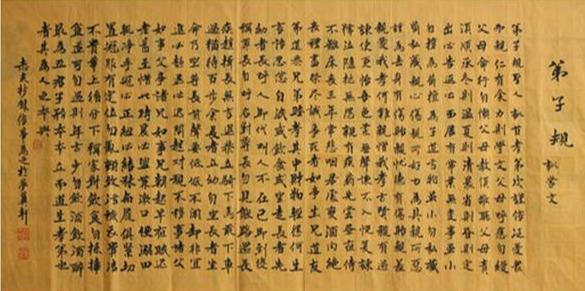 弟子規
弟子規聖人訓首孝弟次謹信泛愛眾
而親仁有餘力則學文父母呼應勿緩
父母命行勿懶父母教須敬聽父母責
須順承冬則溫夏則凊晨則省昏則定
出必告返必面居有常業無變事雖小
勿擅為苟擅為子道虧物雖小勿私藏
苟私藏親心傷親所好力為具親所惡
謹為去身有傷貽親憂德有傷貽親羞
親愛我孝何難親憎我孝方賢親有過
諫使更怡吾色柔吾聲諫不入悅復諫
號泣隨撻無怨親有疾藥先嘗晝夜侍
不離床喪三年常悲咽居處變酒肉絕
喪禮盡祭盡誠事死者如事生兄道友
弟道恭兄弟睦孝在中財物輕怨何生
言語忍忿自泯或飲食或坐走長者先
幼者後長呼人即代叫人不在己即到稱
尊長勿呼名對尊長勿見能路遇長
疾趨揖長無言退恭立騎下馬乘下車
過猶待百步餘長者立幼勿坐長者坐
命乃坐尊長前聲要低低不聞卻非宜
進必趨退必遲問起對視勿移事諸父
如事父事諸兄如事兄朝起早夜眠遲
老易至惜此時晨必盥兼漱口便溺回
輒淨手冠必正紐必結襪與履俱緊切
置冠服有定位勿亂頓致污穢衣貴潔
不貴華上循分下稱家對飲食勿揀擇
食適可勿過則年方少勿飲酒飲酒醉
最為丑君子務本本立而道生孝弟也
者其為仁之本與